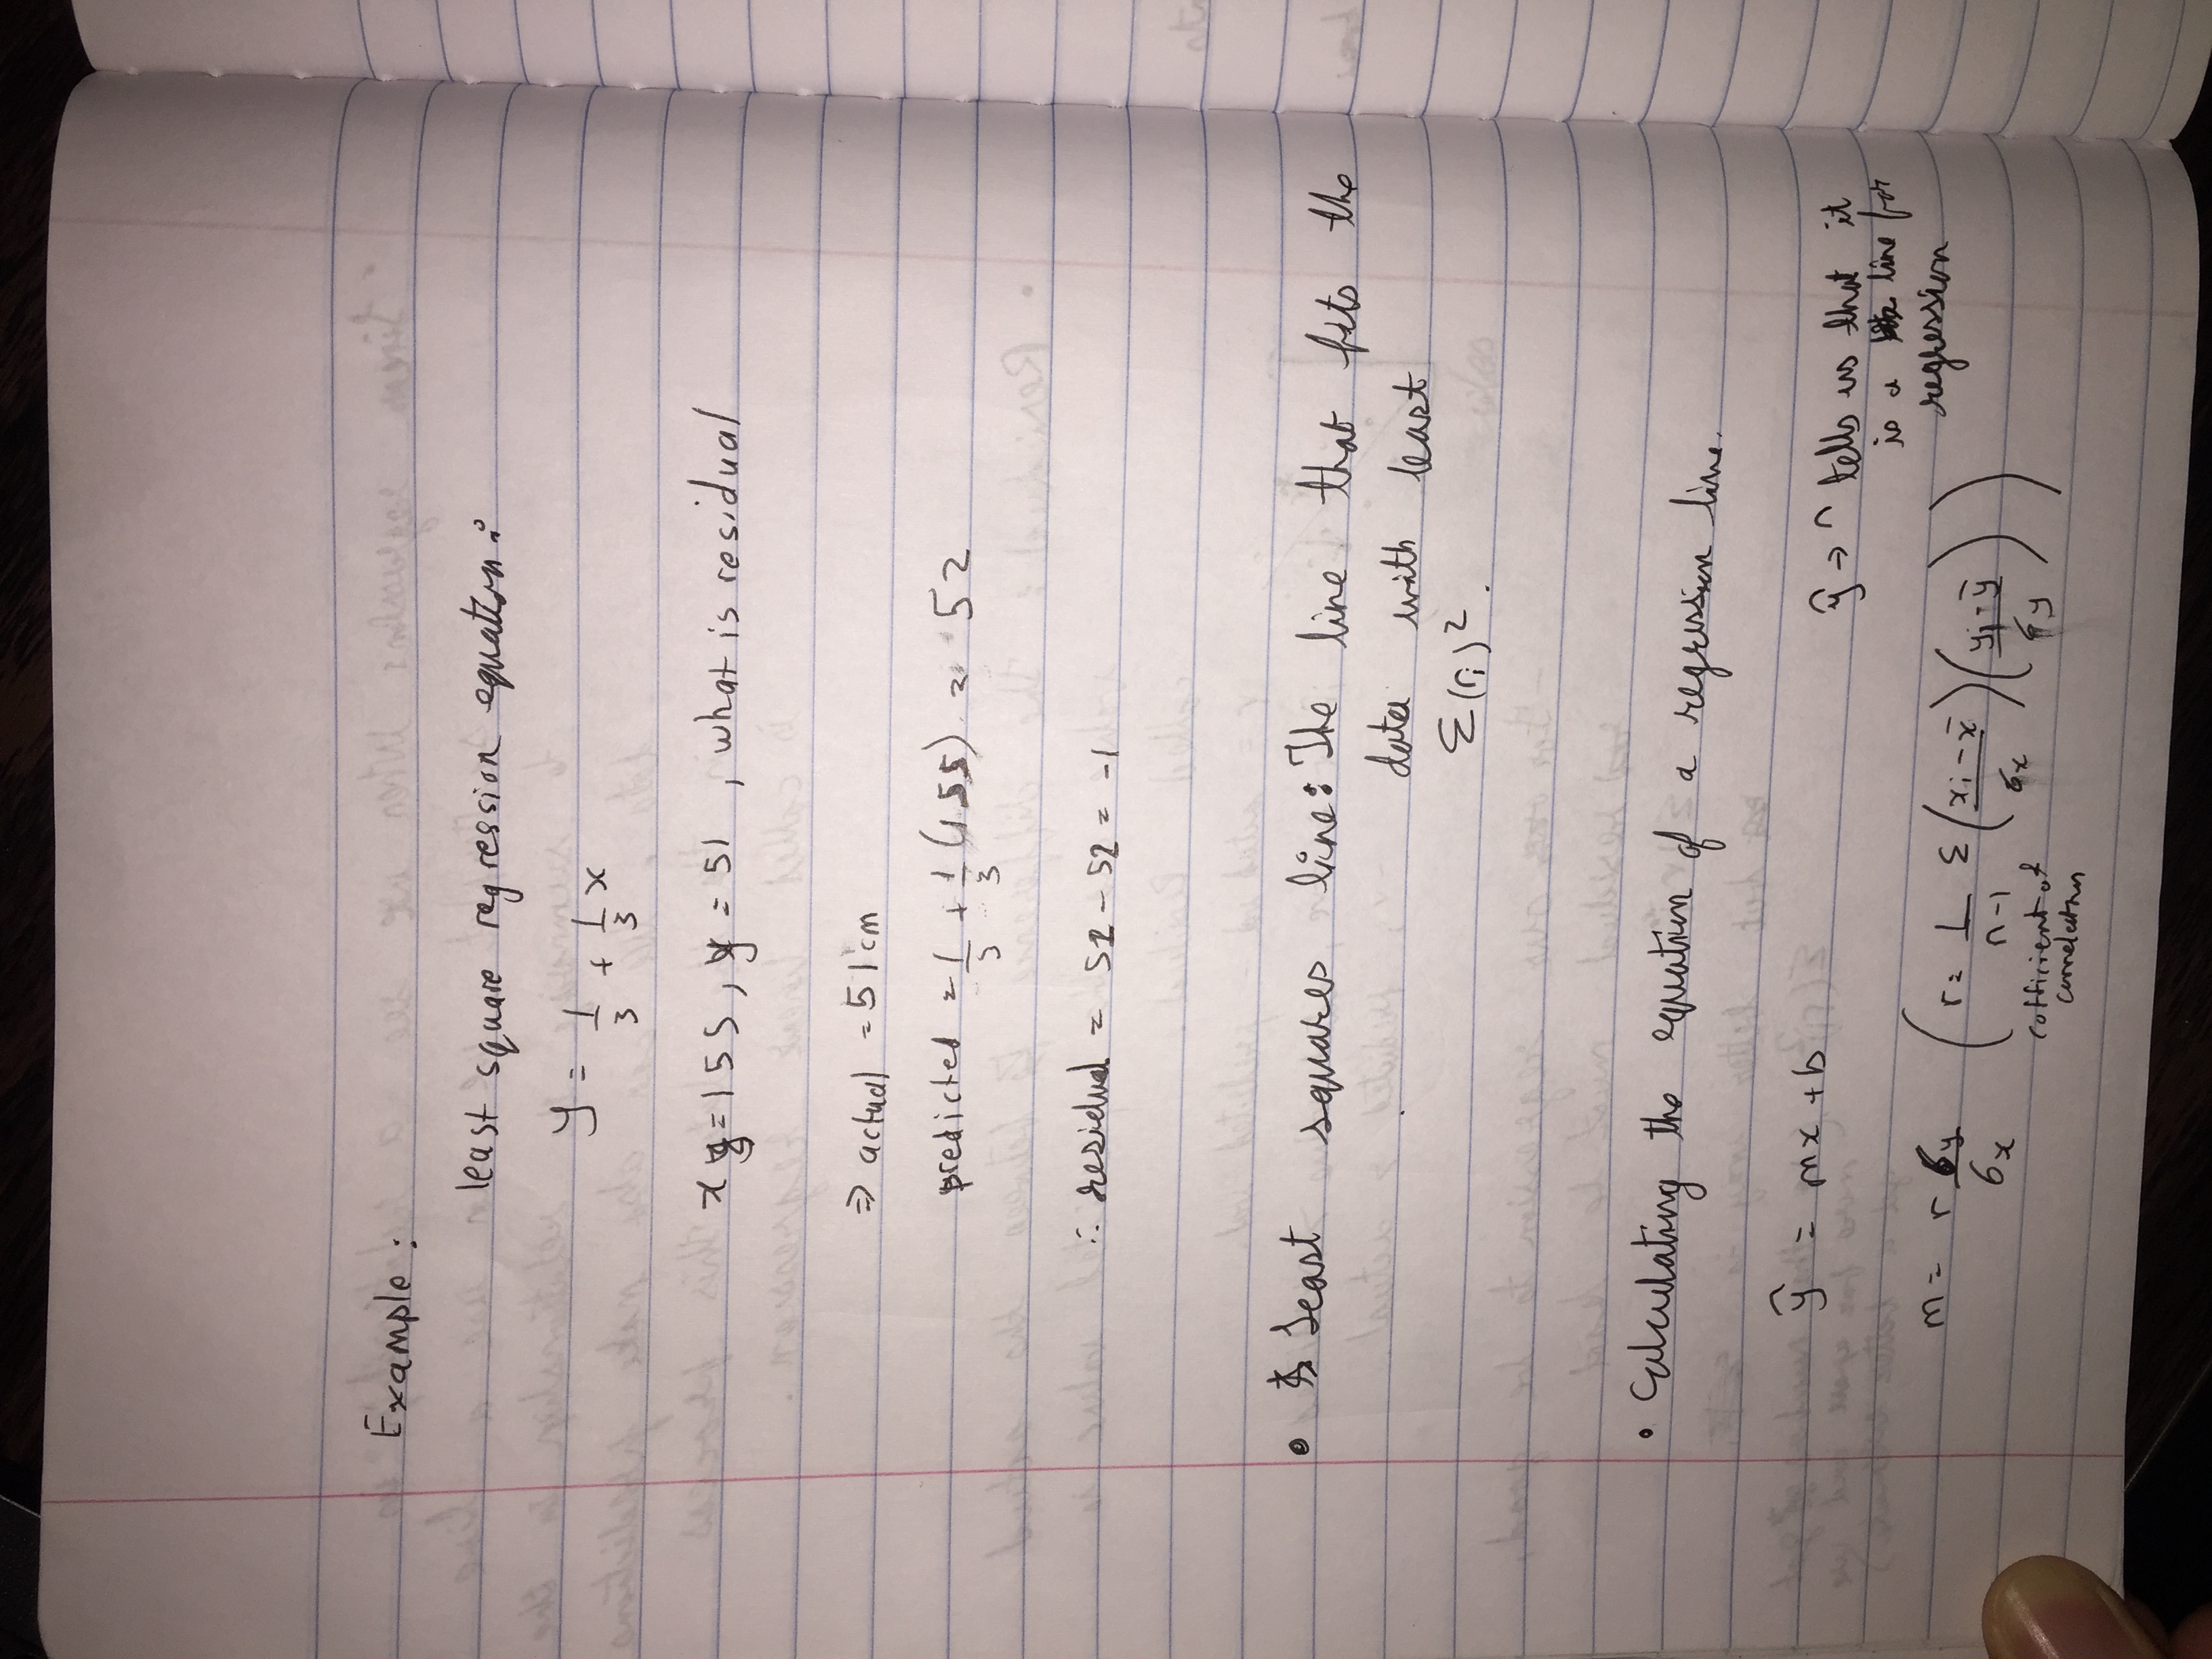 Example :
least square regression equation :
y = 1/3 + 1/3 x
x = 155 , y = 51 , what is residual
⇒ actual = 51 cm
predicted = 1/3 + 1/3 (155) = 52
∴ residual = 51 - 52 = -1
• Least squares line : The line that fits the
data with least
Σ(ri)².
• Calculating the equation of a regression line.
ŷ = mx + b
ŷ → ^ tells us that it
is a line for
regression
m = r σy/σx ( r = 1/n-1 Σ (xi - x̄/σx) (yi - ȳ/σy) )
cofficient of
correlation